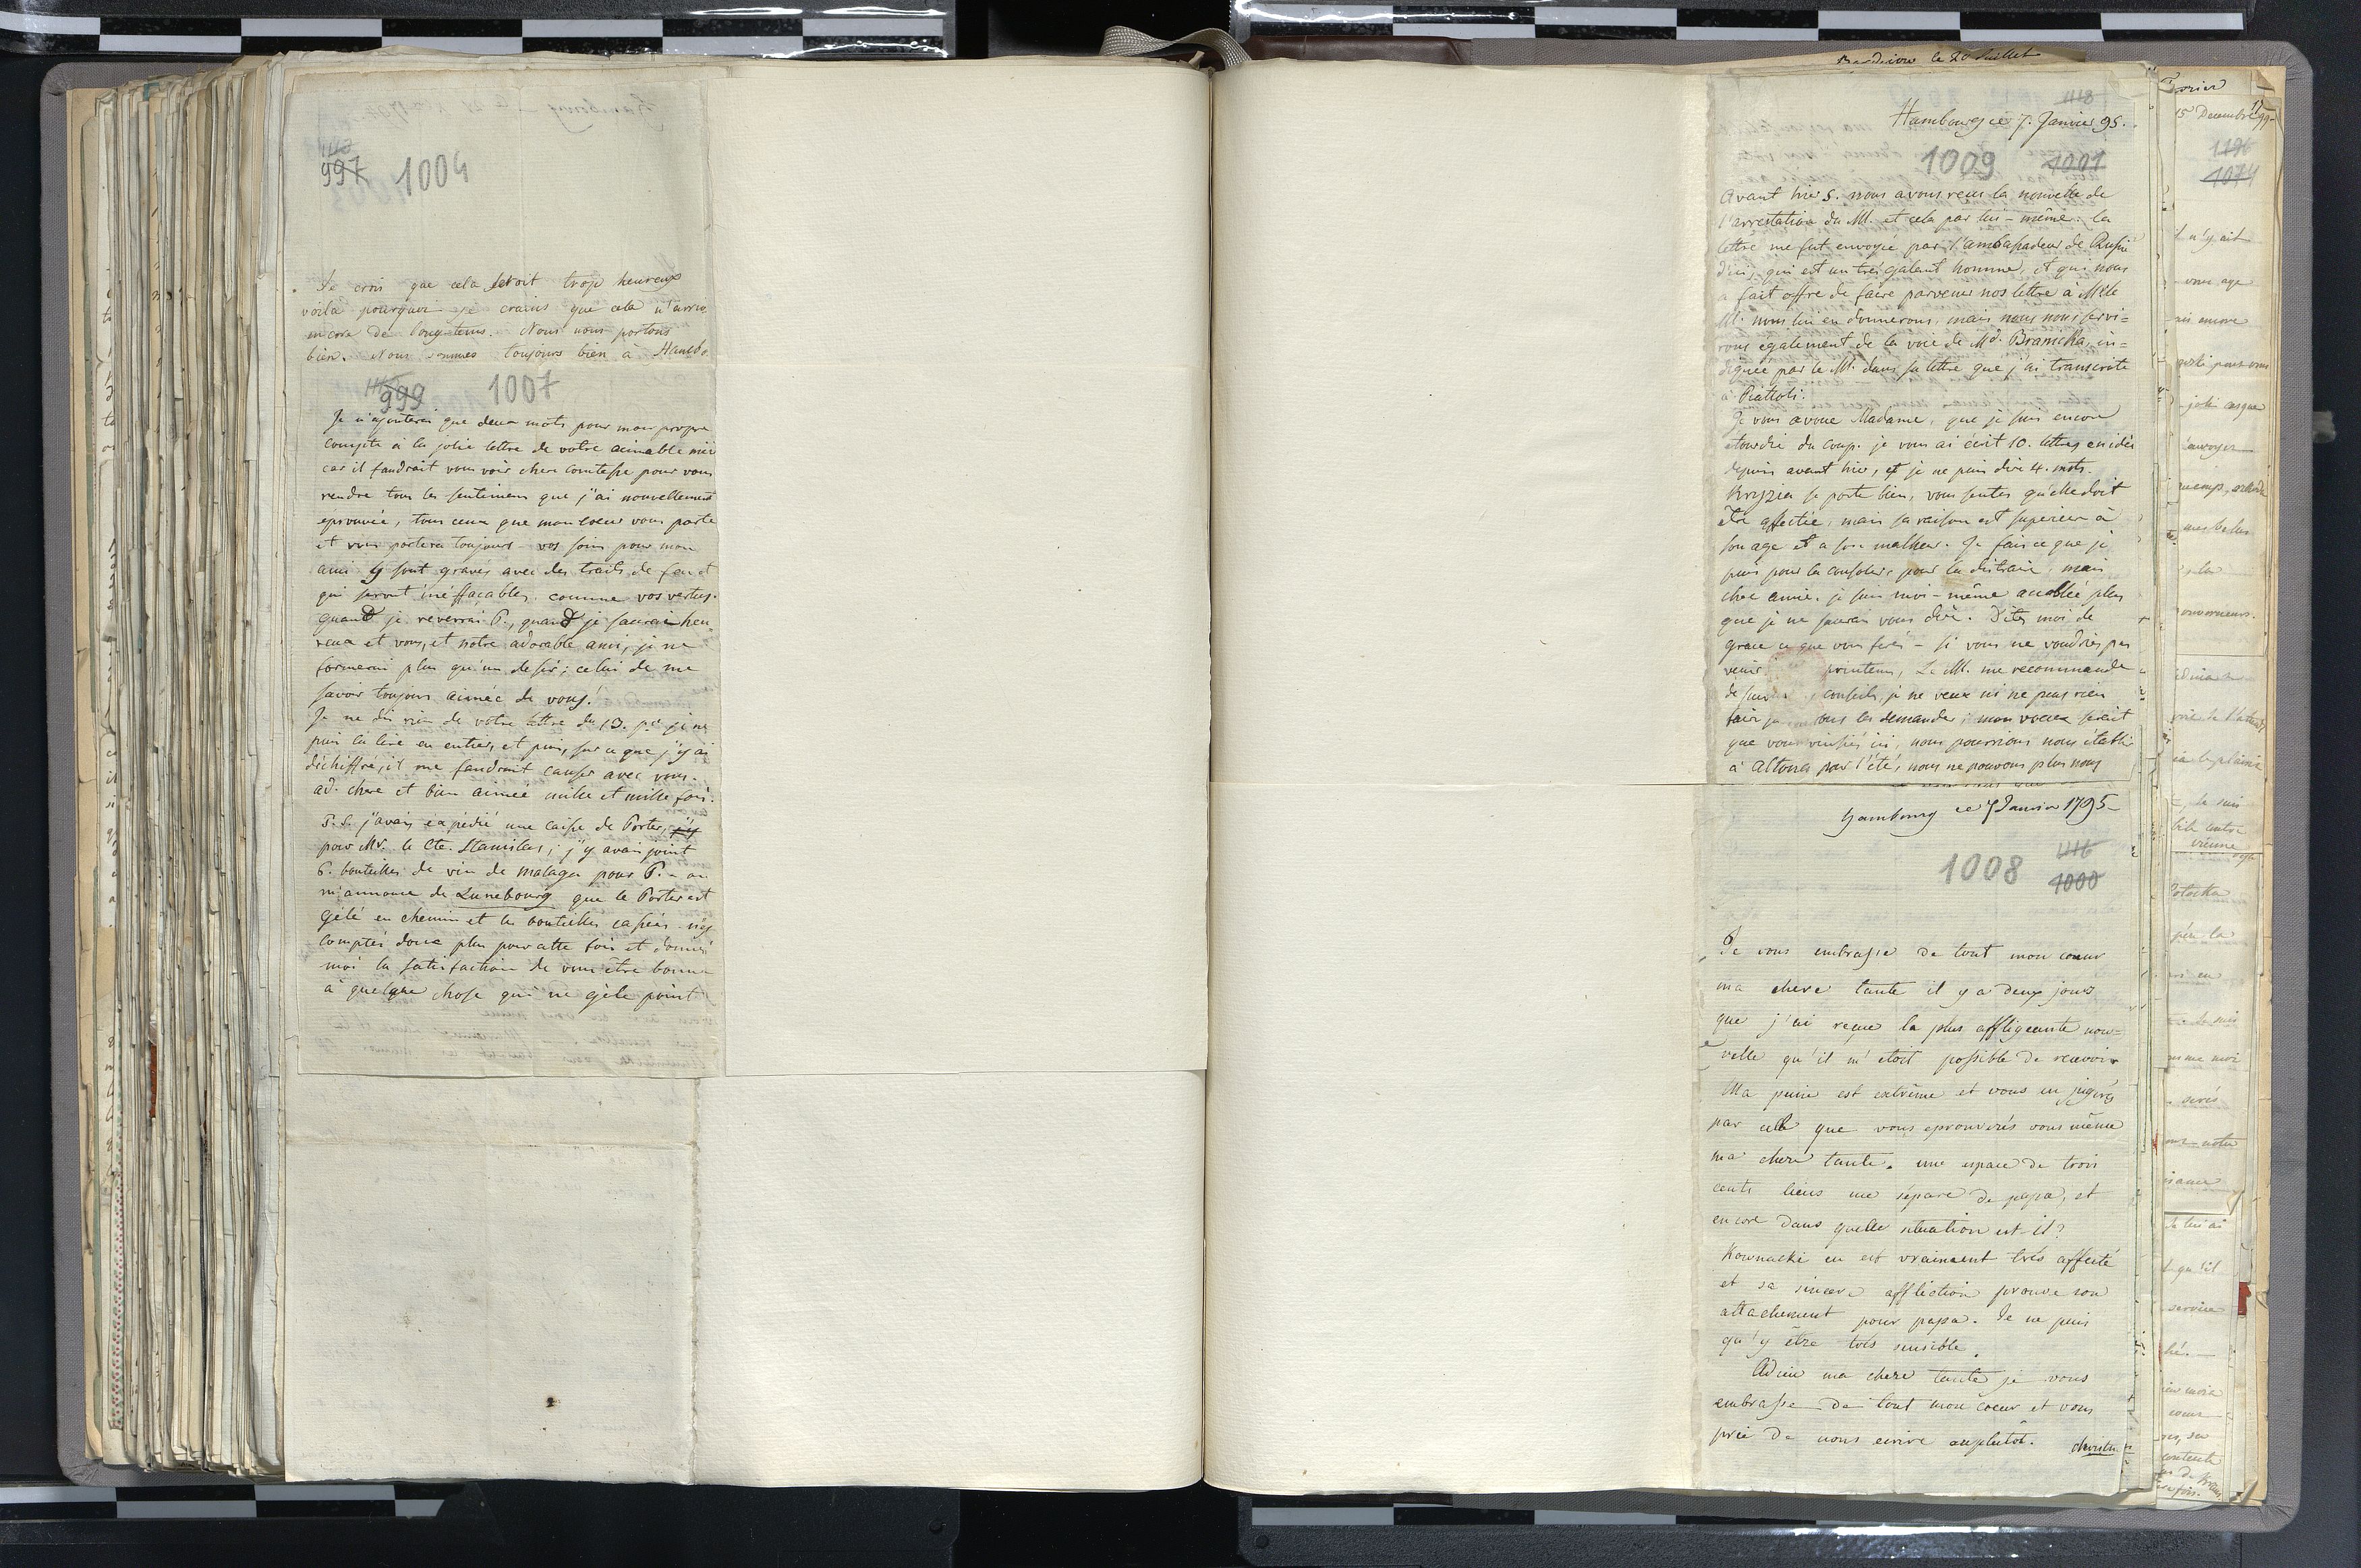 997 1004
Je crois que cela seroit trop heureux
voila pourquoi je crains que cela n'arrive
encore de long-tems. Nous nous portons
bien. Nous sommes toujours bien à Hambo
999 1007
Je n'ajouterai que deux mots pour mon propre
compte à la jolie lettre de votre aimable nièce
car il faudrait vous voir chere comtesse pour vous
rendre tous les sentimens que j'ai nouvellement
eprouvée, tous ceux que mon coeur vous porte
et vous portera toujours - vos soins pour mon
ami y sont gravés avec des traits de feu et
qui seront inéffaçables comme vos vertus.
quand je reverrai P., quand je saurai heu=
reux et vous, et notre adorable ami, je ne
formerai plus qu'un desir; celui de me
savoir toujours aimée de vous!
Je ne dis rien de votre lettre du 13. je ne
puis la lire en entier, et puis, sur ce que j'y ai
déchiffré, il me faudrait causer avec vous.
ad. chere et bien aimée mille et mille fois.
P.S. j'avais expédié une caisse de Porter, j'y
pour Mr. le Cte. Stanislas; j'y avais joint
6. bouteilles de vin de malaga pour P. - on
m'annonce de Lunebourg que le Porter est
gêlé en chemin et les bouteilles cassées - n'y
comptés donc plus pour cette fois et donnés
moi la satisfaction de vous être bonne
à quelque chose qui ne gêle point
Bardiow le 20 Juillet
1118
Hambourg ce 7. Janvier 95.
1009 1001
Avant hier 5. nous avons reçu la nouvelle de
l'arrestation du M. et cela par lui-même. la
lettre me fut envoyée par l'ambassadeur de Russie
d'ici, qui est un très galant homme, et qui nous
a fait offre de faire parvenir nos lettre à Mr le
M. nous lui en donnerons, mais nous nous servi=
rons egalement de la voie de Md. Branicka, in=
diquée par le M. dans sa lettre que j'ai transcrite
à Piattoli.
Je vous avoue Madame, que je suis encore
etourdie du coup. je vous ai écrit 10. lettres en idée
depuis avant hier, et je ne puis dire 4. mots.
Kryzia se porte bien, vous sentes qu'elle doit
être affectée, mais sa raison est superieur à
son age et a son malheur. Je fais ce que je
puis pour la consoler, pour la distraire, mais
chere amie, je suis moi-même accablée plus
que je ne saurais vous dire. Dites moi de
grace ce que vous ferés - si vous ne voudriés pas
venir printems, Le M. me recommande
de suivre conseils, je ne veux ni ne peus rien
faire vous les demander; mon voeux seroit
que vous vinssiés ici, nous pourrions nous établir
à Altona pour l'été, nous ne pouvons plus nous
hambourg ce 7 Janvier 1795
1008 1116
1000
Je vous embrasse de tout mon coeur
ma chere tante il y a deux jours
que j'ai reçue la plus affligeante nou=
velle qu'il m'etoit possible de recevoir
Ma peine est extrême et vous en jugerés
par celle que vous eprouverés vous même
ma chere tante. une espace de trois
cents lieus me sépare de papa, et
encore dans quelle situation est-il?
Kownacki en est vraiment très affecté
et sa sincere affliction prouve son
attachement pour papa. Je ne puis
qu'y être très sensible.
Adieu ma chere tante je vous
embrasse de tout mon coeur et vous
prie de nous ecrire auplutôt.
15 Decembre
1196
1074